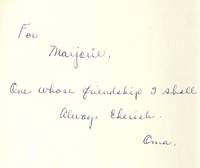 For
Marjorie,
One whose friendship I shall
Always Cherish.
Oma.